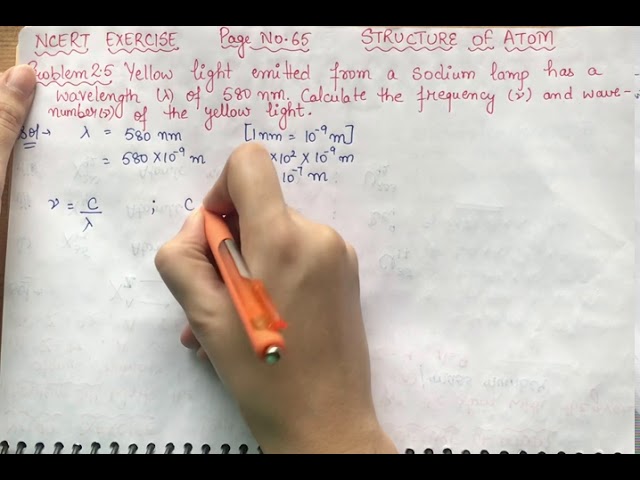 NCERT EXERCISE Page No.65 STRUCTURE of ATOM
Problem 2.5 Yellow light emitted from a sodium lamp has a
wavelength (λ) of 580 nm. Calculate the frequency (ν) and wave-
number(ν̄) of the yellow light.
Sol→ λ = 580 nm [1nm = 10⁻⁹ m]
= 580 × 10⁻⁹ m × 10² × 10⁻⁹ m
10⁻⁷ m
ν = C/λ ; C